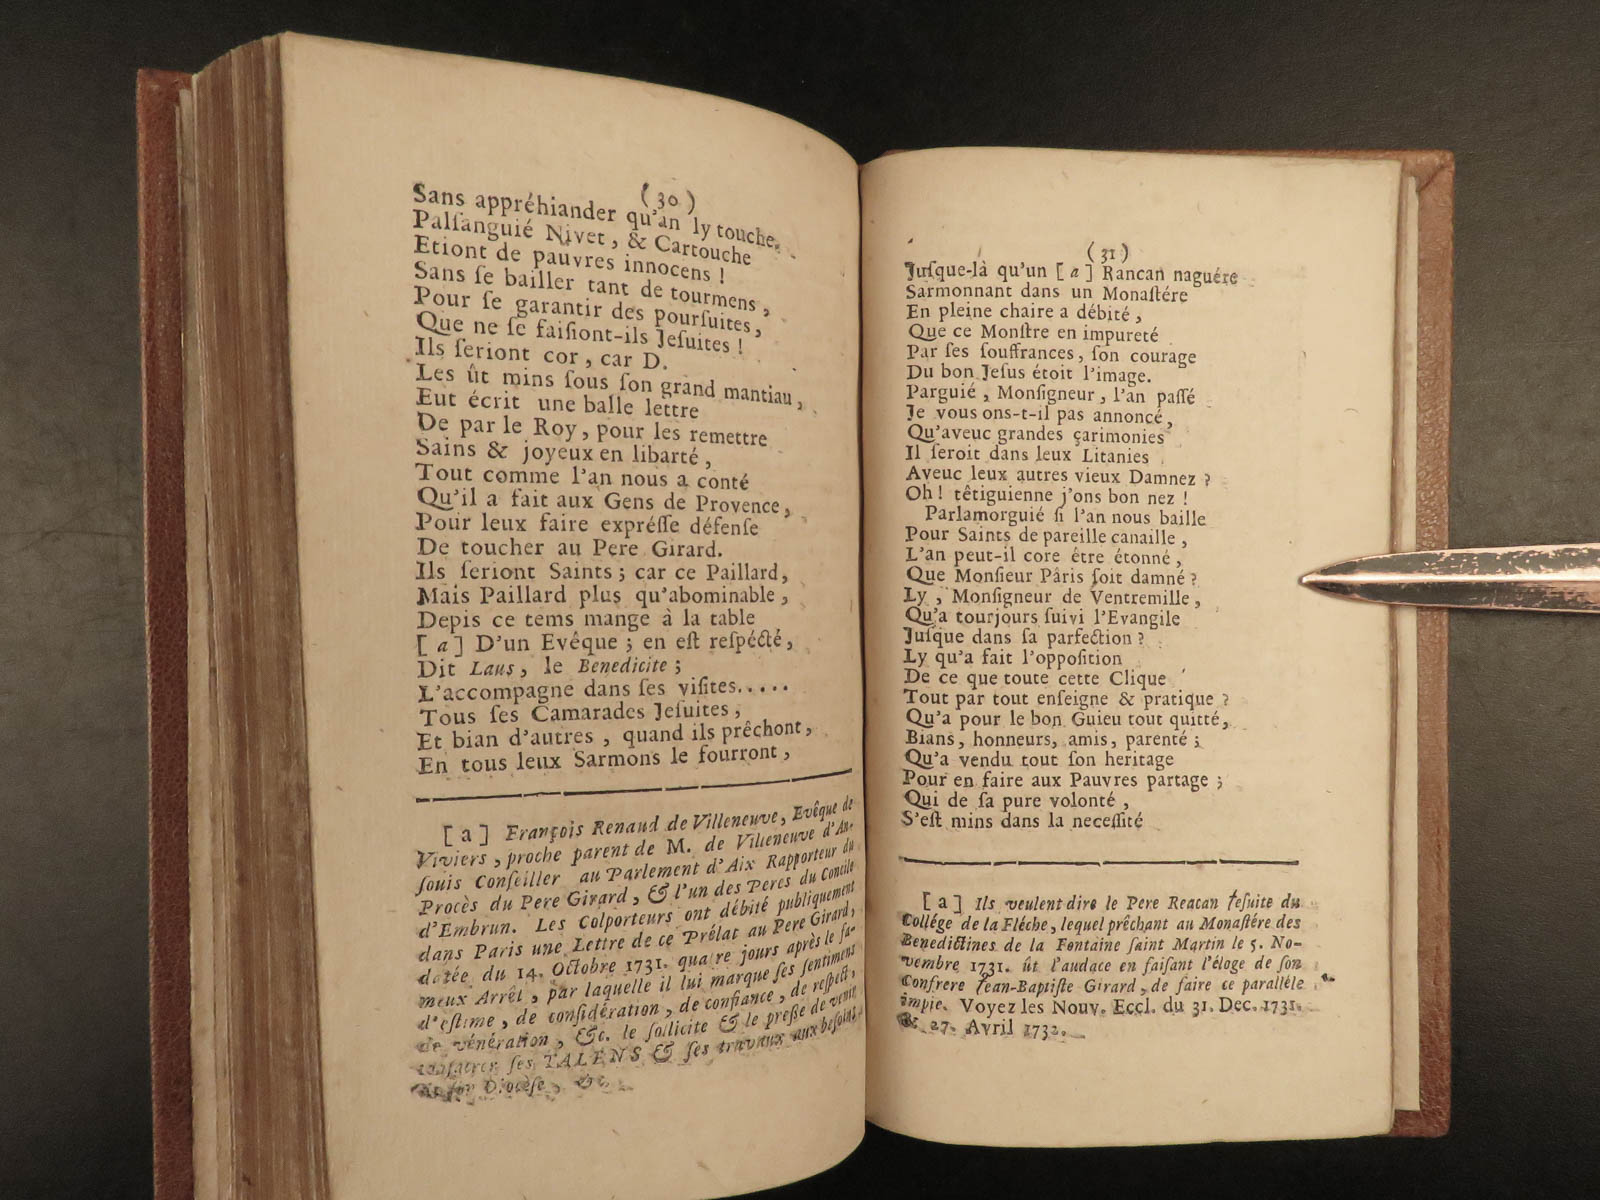 (30)
Sans appréhiander qu'an ly touche.
Palſanguié Nivet, & Cartouche
Etiont de pauvres innocens !
Sans ſe bailler tant de tourmens,
Pour ſe garantir des pourſuites,
Que ne ſe faiſiont-ils Jeſuites !
Ils ſeriont cor, car D.
Les ût mins ſous ſon grand mantiau,
Eut écrit une balle lettre
De par le Roy, pour les remettre
Sains & joyeux en libarté,
Tout comme l'an nous a conté
Qu'il a fait aux Gens de Provence,
Pour leux faire expréſſe défenſe
De toucher au Pere Girard.
Ils ſeriont Saints ; car ce Paillard,
Mais Paillard plus qu'abominable,
Depis ce tems mange à la table
[a] D'un Evêque ; en eſt reſpécté,
Dit Laus, le Benedicite ;
L'accompagne dans ſes viſites.....
Tous ſes Camarades Jeſuites,
Et bian d'autres, quand ils prêchont,
En tous leux Sarmons le fourront,
[a] François Renaud de Villeneuve, Evêque de
Viviers, proche parent de M. de Villeneuve d'An-
ſouis Conſeiller au Parlement d'Aix Rapporteur du
Procès du Pere Girard, & l'un des Peres du Concile
d'Embrun. Les Colporteurs ont débité publiquement
dans Paris une Lettre de ce Prélat au Pere Girard,
datée du 14. Octobre 1731. quatre jours après le fa-
meux Arrêt, par laquelle il lui marque ſes ſentimens
d'eſtime, de conſidération, de confiance, de reſpect,
de vénération, &c. le ſollicite & le preſſe de venir
conſacrer ſes TALENS & ſes travaux aux beſoins
de ſon Diocèſe, &c.
(31)
Juſque-là qu'un [a] Rancan naguére
Sarmonnant dans un Monaſtére
En pleine chaire a débité,
Que ce Monſtre en impureté
Par ſes ſouffrances, ſon courage
Du bon Jeſus étoit l'image.
Parguié, Monſigneur, l'an paſſé
Je vous ons-t-il pas annoncé,
Qu'aveuc grandes çarimonies
Il ſeroit dans leux Litanies
Aveuc leux autres vieux Damnez ?
Oh ! têtiguienne j'ons bon nez !
Parlamorguié ſi l'an nous baille
Pour Saints de pareille canaille,
L'an peut-il core être étonné,
Que Monſieur Pâris ſoit damné ?
Ly, Monſigneur de Ventremille,
Qu'a tourjours ſuivi l'Evangile
Juſque dans ſa parfection ?
Ly qu'a fait l'oppoſition
De ce que toute cette Clique
Tout par tout enſeigne & pratique ?
Qu'a pour le bon Guieu tout quitté,
Bians, honneurs, amis, parenté ;
Qu'a vendu tout ſon heritage
Pour en faire aux Pauvres partage ;
Qui de ſa pure volonté,
S'eſt mins dans la neceſſité
[a] Ils veulent dire le Pere Reacan Jeſuite du
Collége de la Fléche, lequel prêchant au Monaſtére des
Benedictines de la Fontaine ſaint Martin le 5. No-
vembre 1731. ût l'audace en faiſant l'éloge de ſon
Confrere Jean-Baptiſte Girard, de faire ce paralléle
impie. Voyez les Nouv. Eccl. du 31. Dec. 1731.
& 27. Avril 1732.